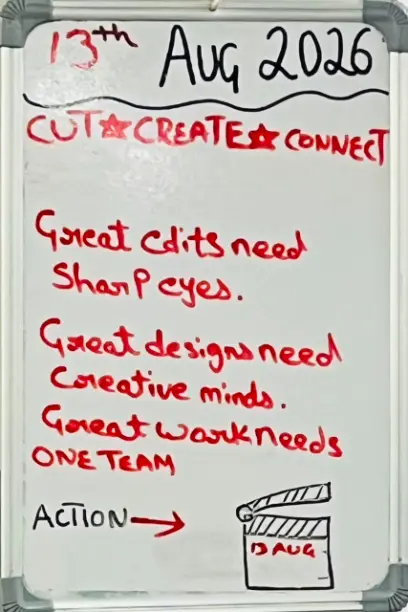 13th Aug 2026
CUT★CREATE★CONNECT
Great edits need
Sharp eyes.
Great designs need
Creative minds.
Great work needs
ONE TEAM
ACTION→
13 AUG